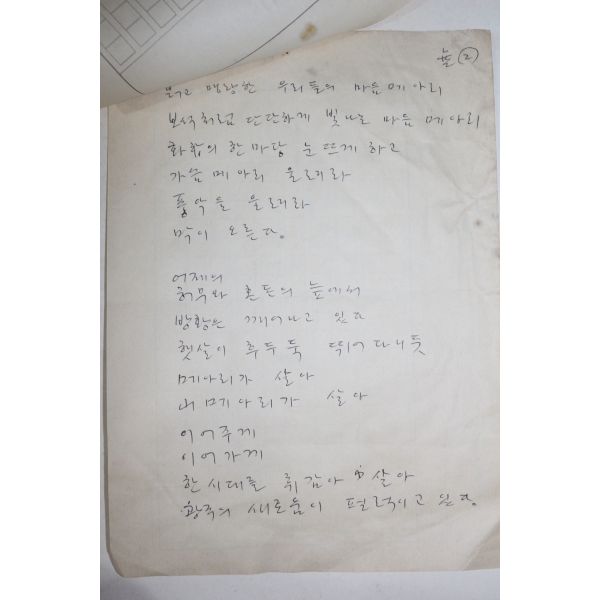 늪 ②
맑고 명랑한 우리들의 마음 메아리
보석처럼 단단하게 빛나는 마음 메아리
화합의 한마당 눈뜨게 하고
가슴 메아리 울려라
풍악을 울려라
막이 오른다.
어제의
허무와 혼돈의 늪에서
방황은 깨어나고 있다
햇살이 후두둑 뛰어다니듯
메아리가 살아
산 메아리가 살아
이어주게
이어가게
한 시대를 휘감아 살아
광주의 새로움이 펄럭이고 있다.